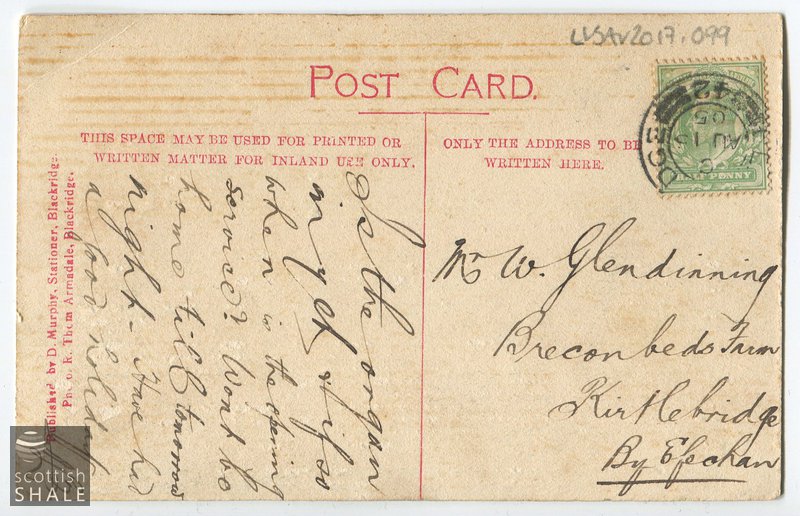 LVSAV2017.099
POST CARD.
THIS SPACE MAY BE USED FOR PRINTED OR
WRITTEN MATTER FOR INLAND USE ONLY.
ONLY THE ADDRESS TO BE
WRITTEN HERE.
AU 15
05
PENNY
Is the organ
in yet & if so
when is the opening
service? Wont be
home till tomorrow
night. Have had
a good holiday
Mr W. Glendinning
Breconbeds Farm
Kirtlebridge
By Efechan
Published by D. Murphy, Stationer, Blackridge.
R. Thom Armadale, Blackridge.
scottish
SHALE